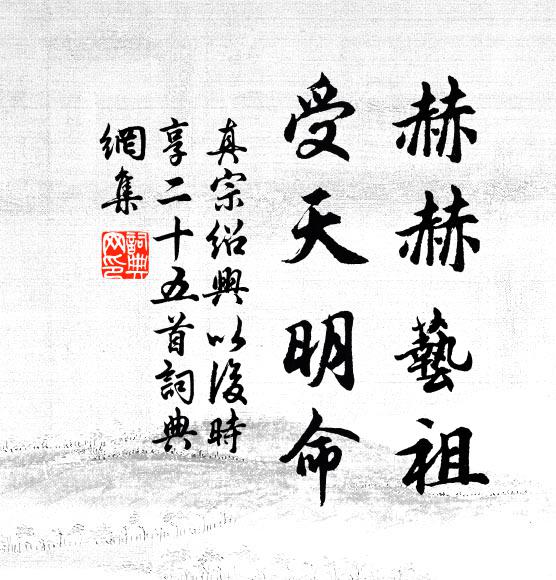 赫赫藝祖
受天明命
真宗紹興以後時
享二十五首詞典
網集
詞典網印